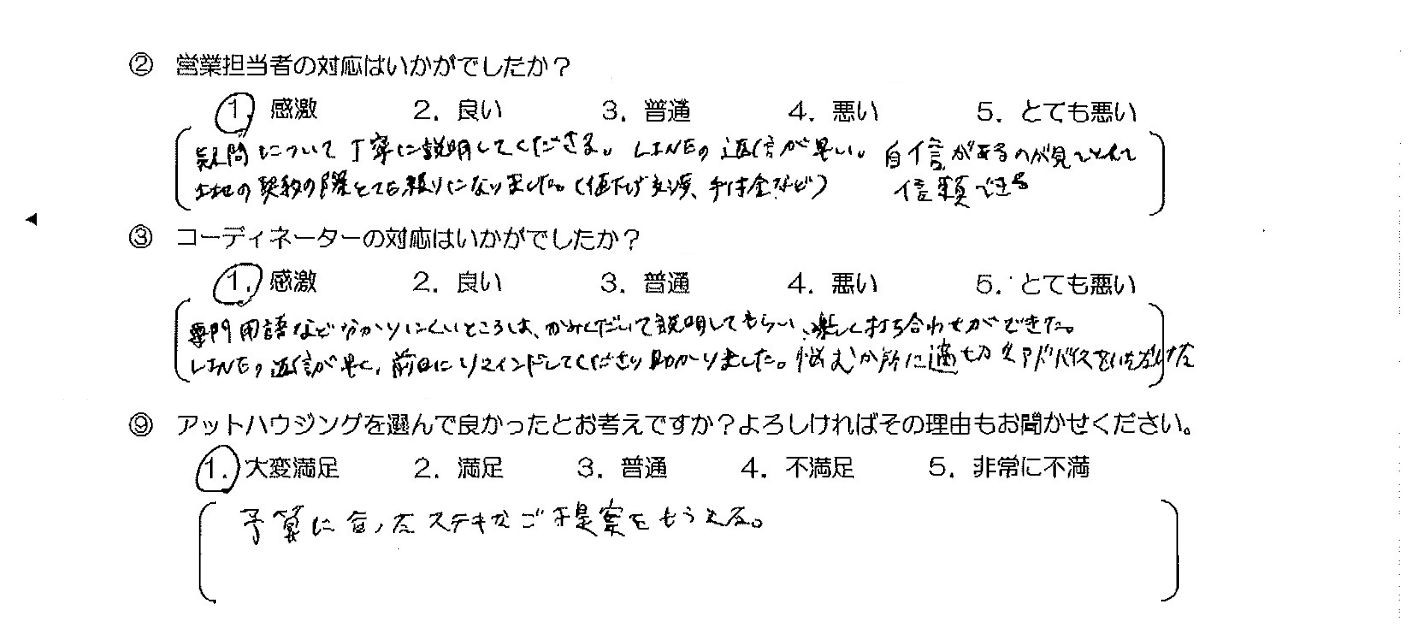 ② 営業担当者の対応はいかがでしたか？
1. 感激 2. 良い 3. 普通 4. 悪い 5. とても悪い
疑問について丁寧に説明してくださる。LINEの返信が早い。自信があるのが見てとれて
土地の契約の際とても頼りになりました。(値下げ交渉、手付金など) 信頼できる
③ コーディネーターの対応はいかがでしたか？
1. 感激 2. 良い 3. 普通 4. 悪い 5. とても悪い
専門用語など分かりにくいところは、かみくだいて説明してもらい、楽しく打ち合わせができた。
LINEの返信が早く、前日にリマインドしてくださり助かりました。悩むか所に適切なアドバイスをいただけた
⑨ アットハウジングを選んで良かったとお考えですか？よろしければその理由もお聞かせください。
1. 大変満足 2. 満足 3. 普通 4. 不満足 5. 非常に不満
予算に合ったステキなご提案をもらえる。